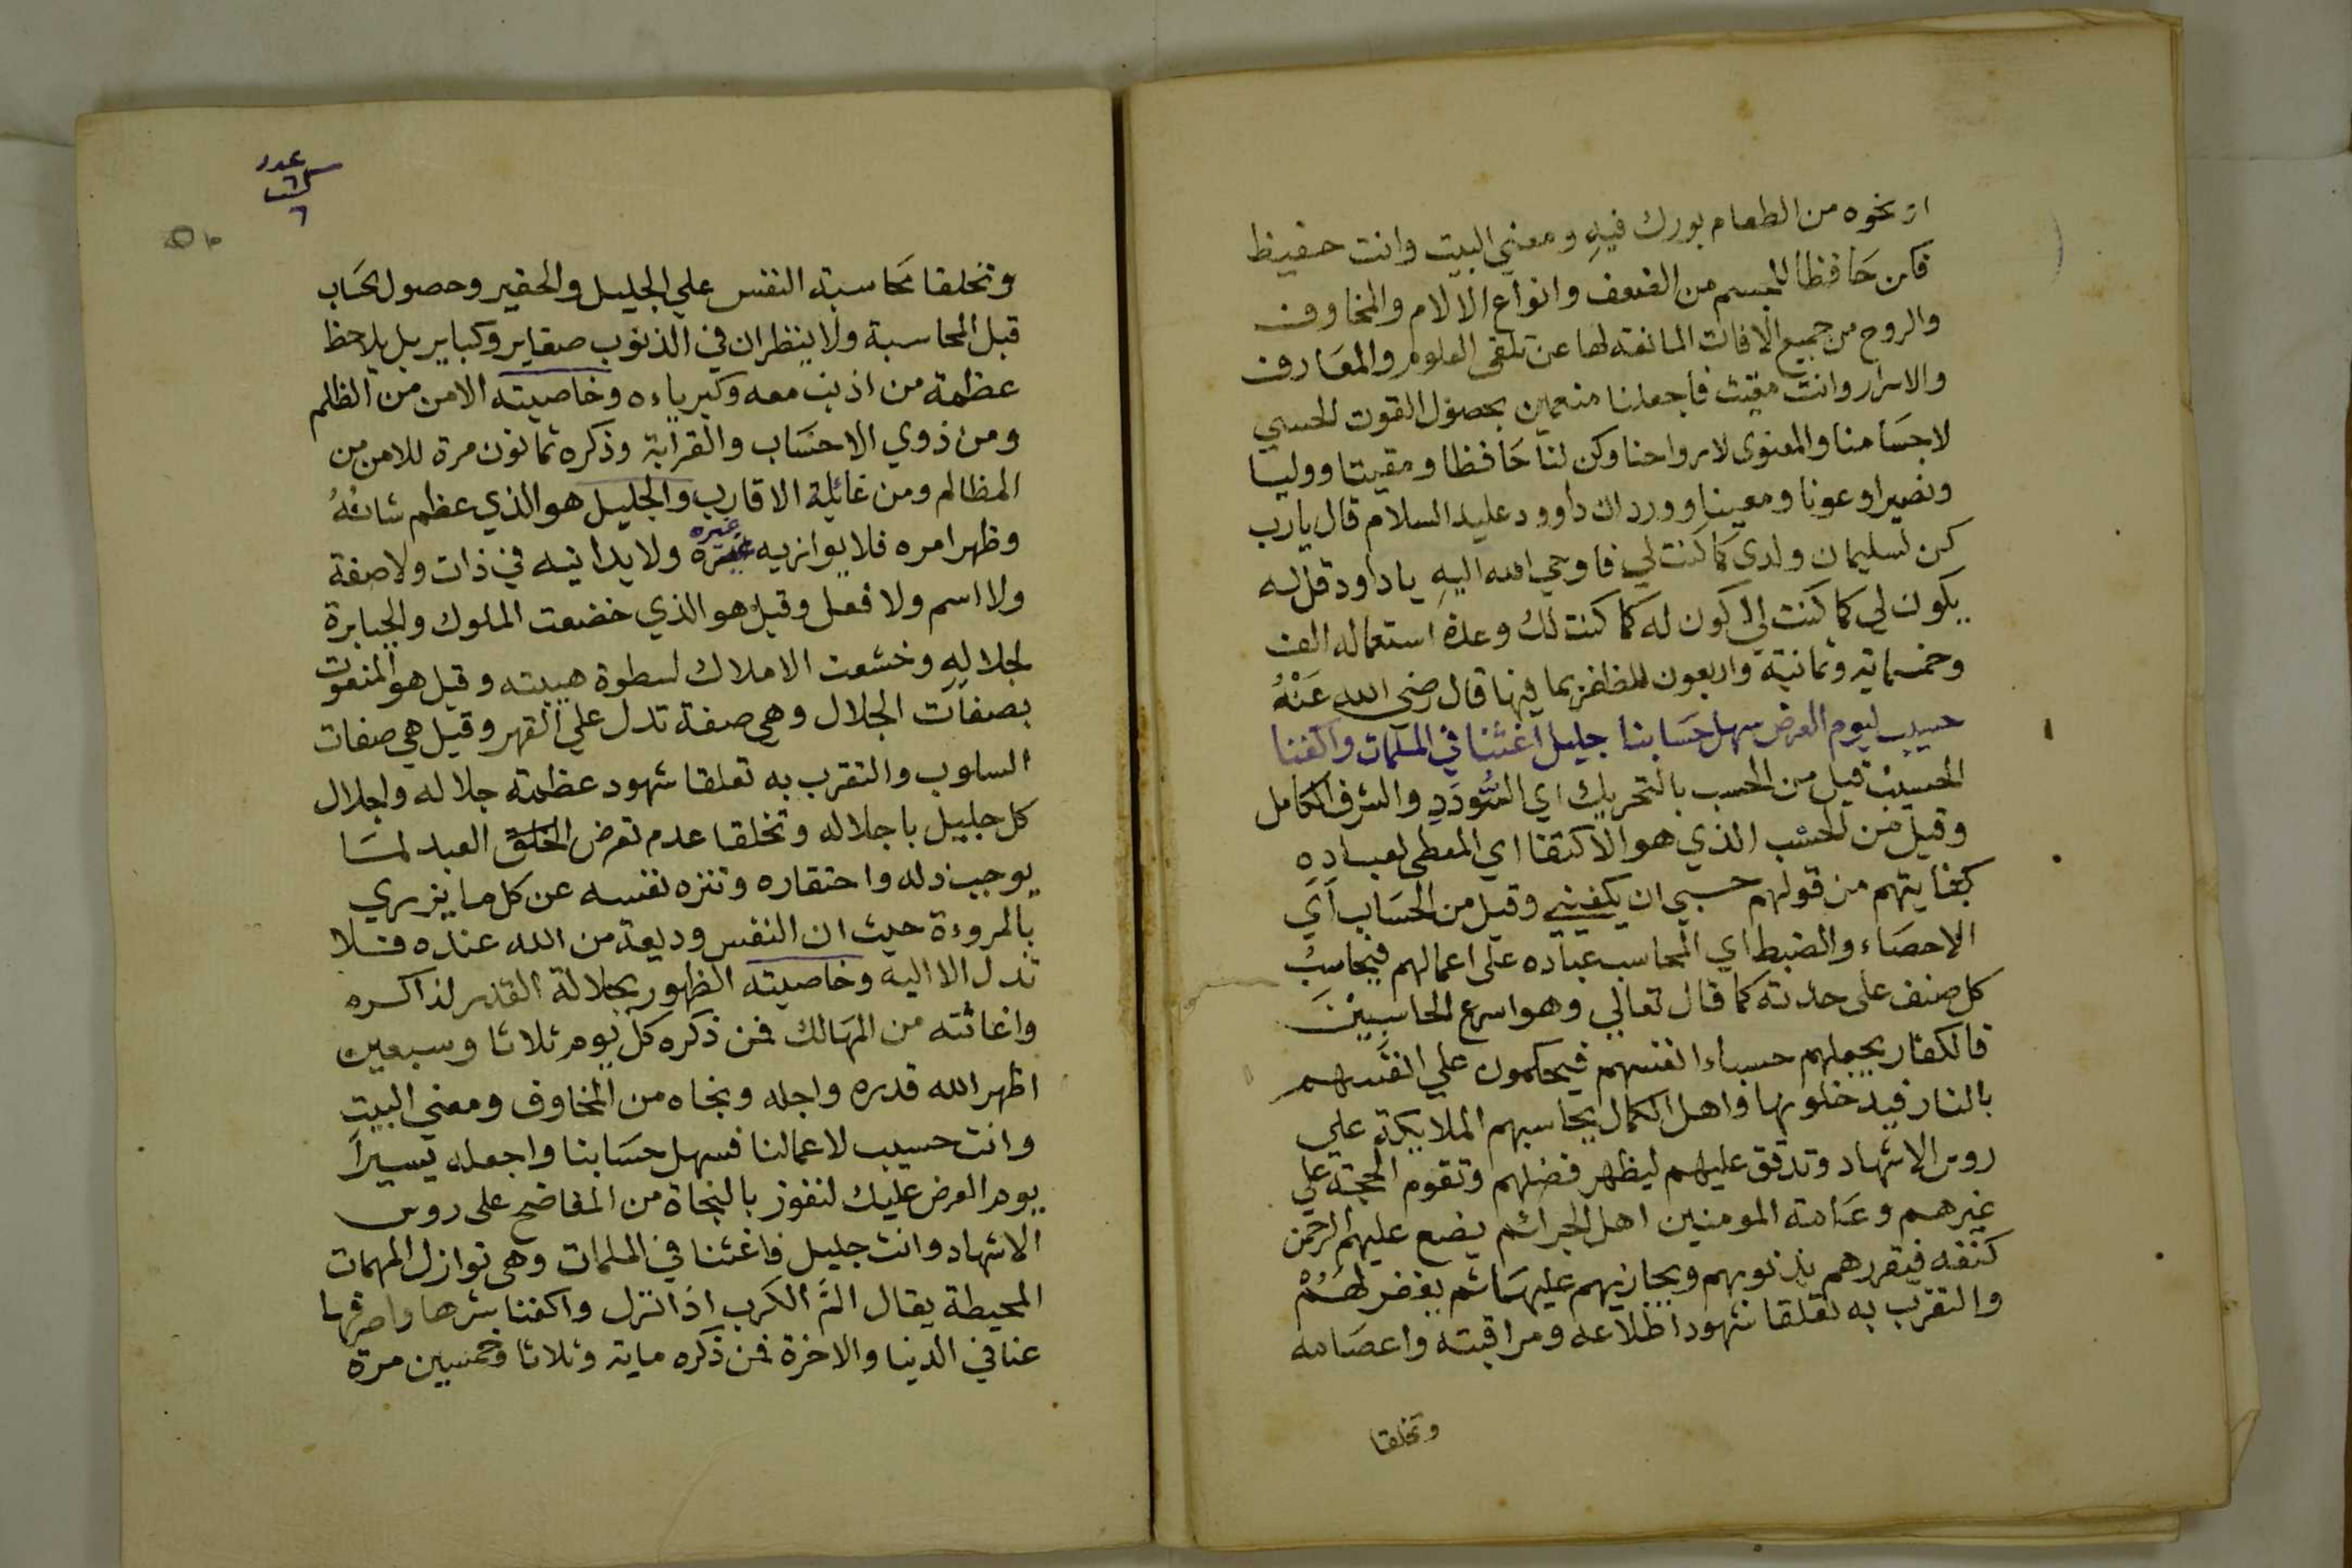 او نحوه من الطعام بورك فيهِ ومعني البيت وانت حفيظ
فكن حَافظا للجسم من الضعف وانواع الالام والمخاوف
والروح من جميع الافات المانعة لها عن تلقى العلوم والمعَارف
والاسرار وانت مقيت فاجعلنا منعمين بحصول القوت الحسي
لاجسَامنا والمعنوى لارواحنا وكن لنا حَافظا ومقيتا ووليا
ونصيرا وعونا ومعينا وورد ان داوود عليه السلام قال يارب
كن لسليمان ولدى كما كنت لي فاوحي الله اليهِ يا داود قل له
يكون لي كما كنت لي اكون له كما كنت لك وعدة استعماله الف
وخمسماية وثمانية واربعون للظفر بما فيها قال رضى الله عَنْهُ
حسيب ليوم العرض سهل حسَابنا جليل اغثنا في الملمات واكفنا
الحسيب قيل من الحسب بالتحريك اي السُّودَدِ والشرف الكامل
وقيل من الحسْب الذي هو الاكتفا اي المعطى لعباده
كفايتهم من قولهم حسبي ان يكفيني وقيل من الحسَاب اَي
الاحصَاء والضبط اي المحاسب عباده على اعمالهم فيحاسبُ
كل صنف على حدته كما قال تعالي وهو اسرع الحاسبِيْنَ
فالكفار يجعلهم حسباء انفسهم فيحكمون علي انفسهم
بالنار فيدخلونها واهل الكمال يحاسبهم الملايكة علي
روس الاشهاد وتدقق عليهم ليظهر فضلهم وتقوم الحجة علي
غيرهم وعَامة المومنين اهل الجرائم يضع عليهم الرحمن
كنفه فيقررهم بذنوبهم ويجازيهم عليهَا ثم يغفر لهُمْ
والتقرب به تعلقا شهود اطلاعه ومراقبته واعصَامه
وتخلقا
عدد
٦
٦
وتخلقا محَاسبة النفس علي الجليل والحقير وحصول الحسَاب
قبل المحاسبة ولا ينظر ان في الذنوب صغاير وكباير بل يلاحظ
عظمة من اذنب معه وكبرياءه وخاصيته الامن من الظالم
ومن ذوي الاحسَاب والقرابة وذكره ثمانون مرة للامن من
المظالم ومن غائلة الاقارب والجليل هو الذي عظم شانُهُ
وظهر امره فلا يوازيه غيره غيره ولا يدانيه في ذات ولا صفة
ولا اسم ولا فعل وقيل هو الذي خضعت الملوك والجبابرة
لجلالهِ وخشعت الاملاك لسطوة هيبته وقيل هو المنعوت
بصفات الجلال وهي صفة تدل علي القهر وقيل هي صفات
السلوب والتقرب به تعلقا شهود عظمته جلاله واجلال
كل جليل باجلاله وتخلقا عدم تعرض الخلق العبد لمَا
يوجب ذله واحتقاره وتنزه نفسه عن كل ما يزري
بالمروءة حيث ان النفس وديعة من الله عنده فلا
تذل الا اليه وخاصيته الظهور بجلالة القدر لذاكره
واغاثته من المهَالك فمن ذكره كل يوم ثلاثا وسبعين
اظهر الله قدره واجله ونجاه من المخاوف ومعني البيت
وانت حسيب لاعمالنا فسهل حسَابنا واجعله يسيرًا
يوم العرض عليك لنفوز بالنجاة من المفاضح على روس
الاشهاد وانت جليل فاغثنا في الملمات وهى نوازل المهمات
المحيطة يقال المَّ الكرب اذا نزل واكفنا شرها واصرفها
عنا في الدنيا والاخرة فمن ذكره ماية وثلاثا وخمسين مرة